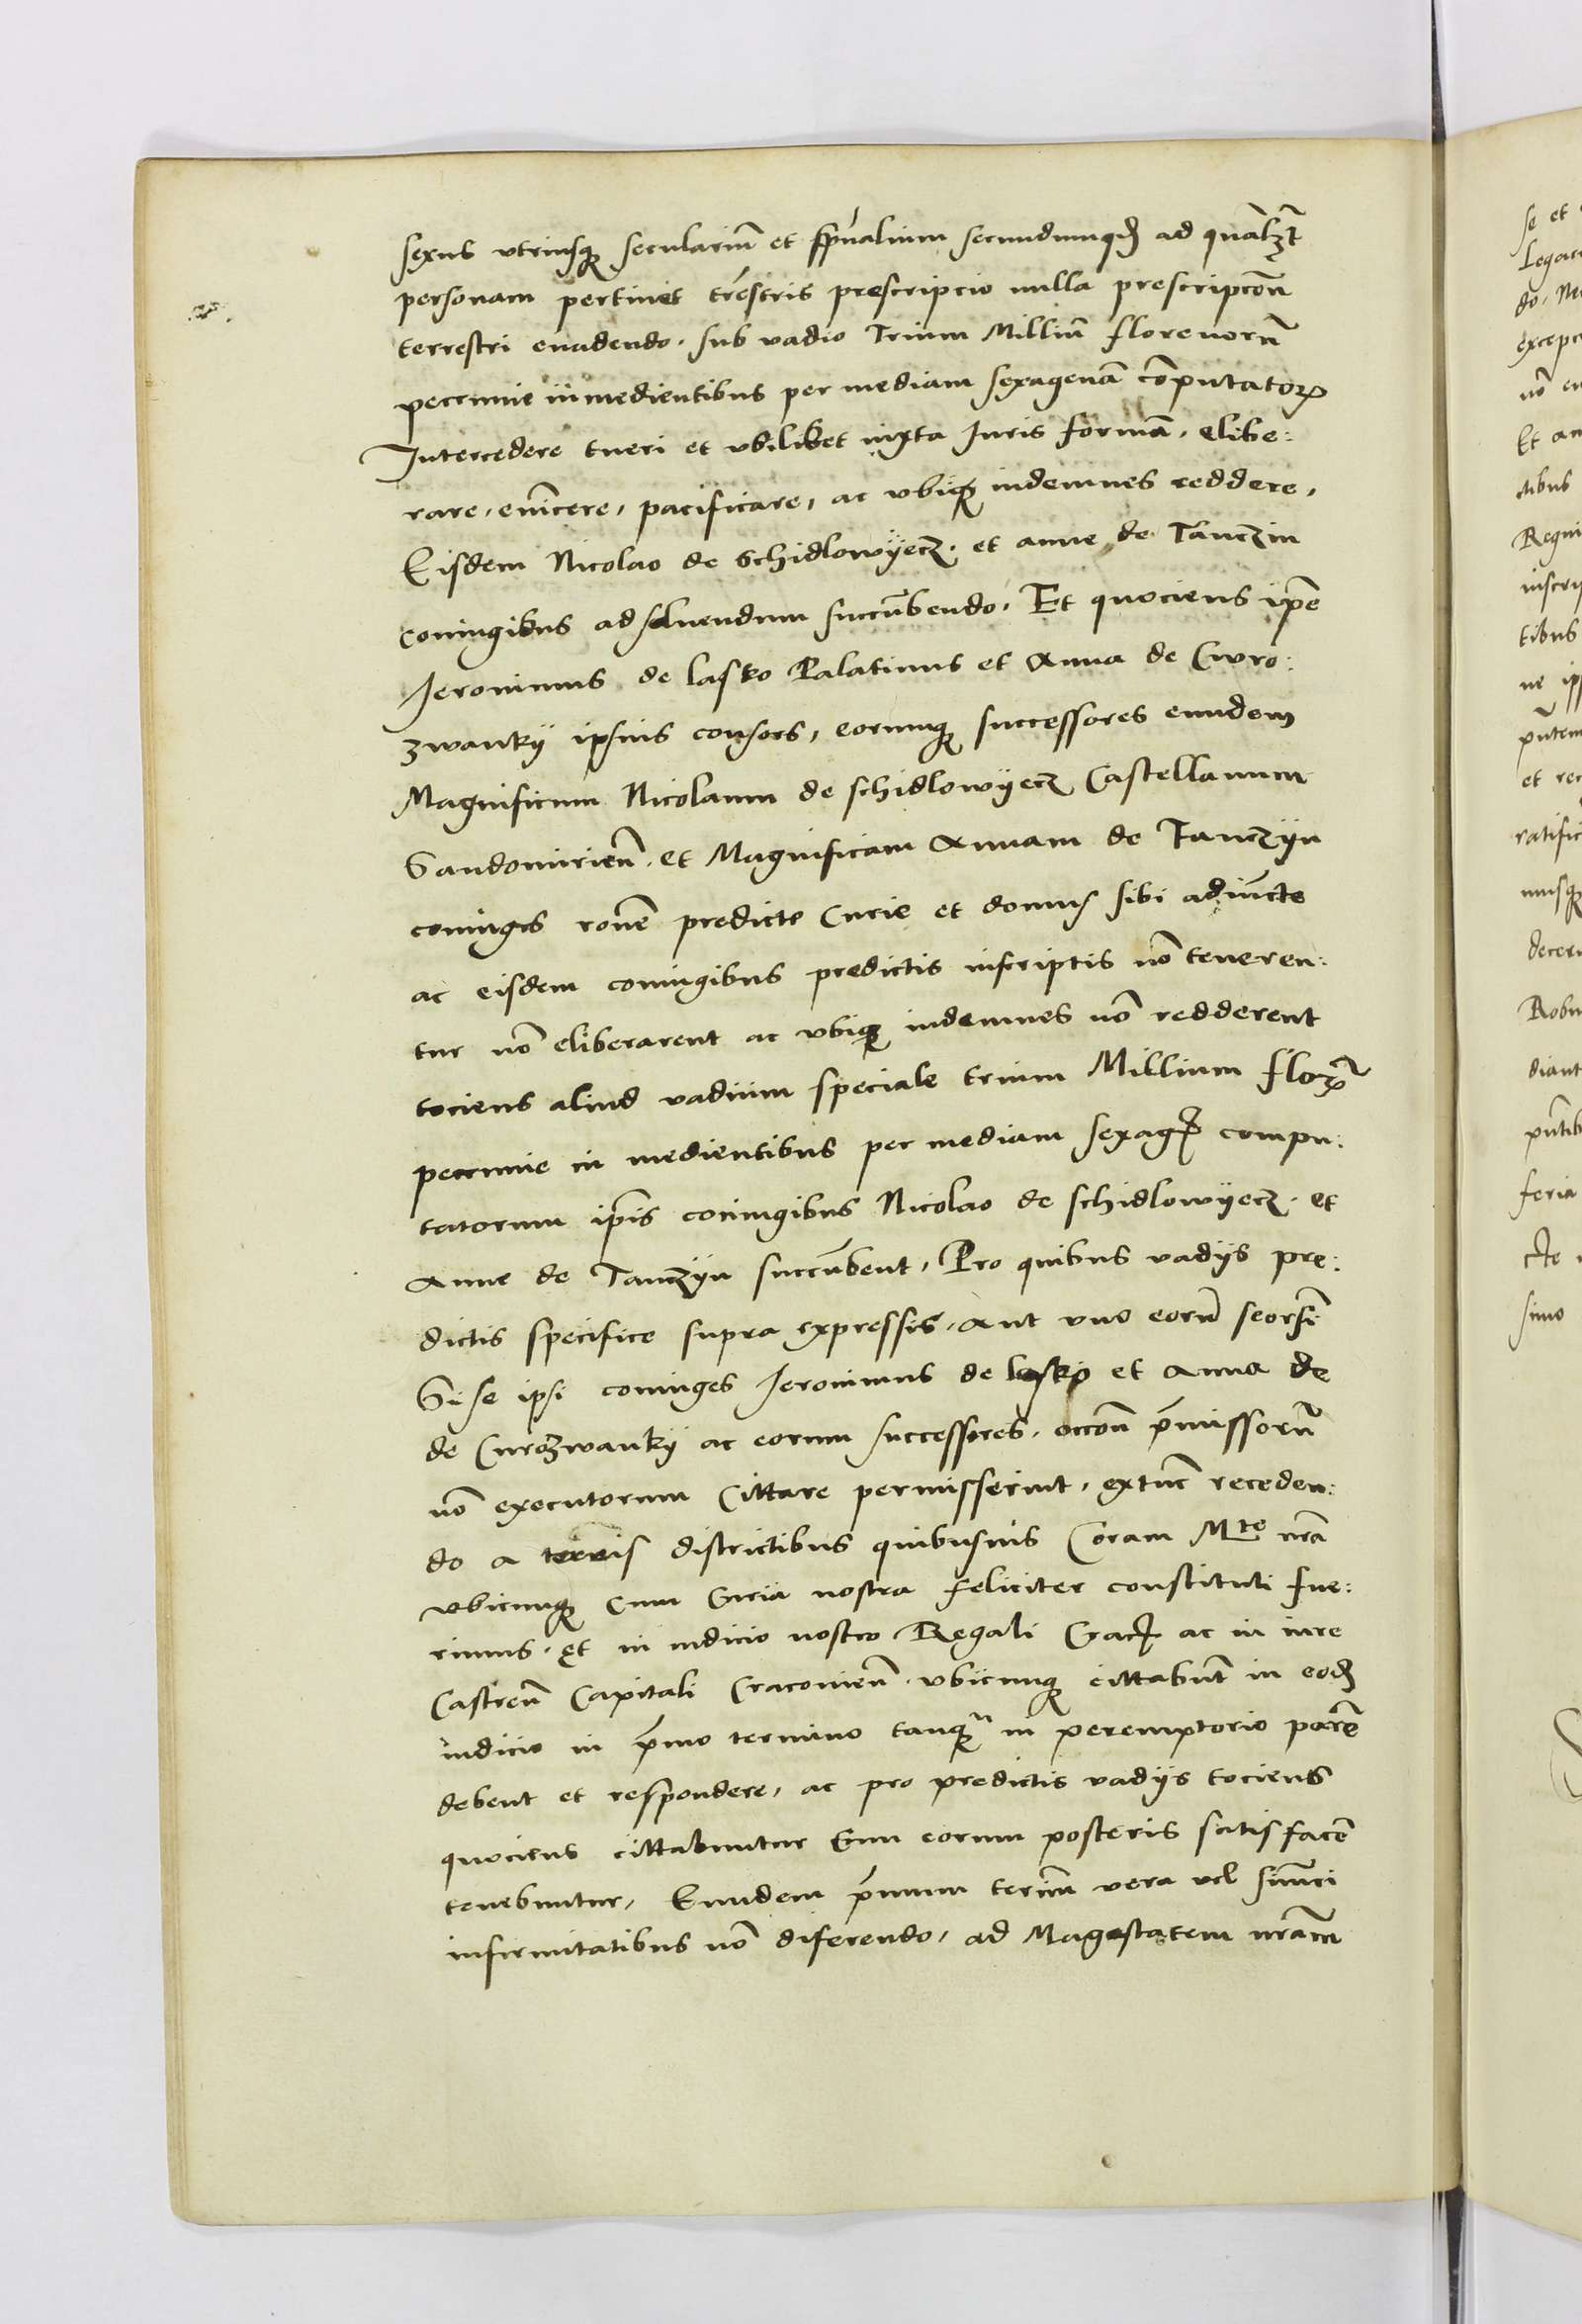 sexus vtriusq seculariū et spūalium secundumqd ad qualzt
personam pertinet trestris prescripcio nulla prescripcōn
terrestri euadendo. sub vadio Trium Milliū florenorū
peccunie in medientibus per mediam sexagenā computatorꝝ
Intercedere tueri et vbilibet iuxta Iuris formā, elibe:
rare, euīcere, pacificare, ac vbiqꝫ indemnes reddere,
Eisdem Nicolao de Schidlowÿecz. et anne de Tanczin
coniugibus ad soluendum succūbendo. Et quociens ip̄e
Jeronimus de lasko Palatinus et Anna de Curo:
zwankÿ ipsius consors, eorumqꝫ successores eundem
Magnificum Nicolaum de schidlowÿecz Castellanum
Sandomirien̄. et Magnificam Annam de Tanczÿn
coniuges ron̄e predicte Curie et domus sibi adiūcte
ac eisdem coniugibus predictis inscriptis nō teneren:
tur nō eliberarent ac vbiqꝫ indemnes nō redderent
tociens aliud vadium speciale trium Millium florꝝ
peccunie in medientibus per mediam sexagꝭ compu:
tatorum ip̄is coniugibus Nicolao de schidlowÿecz. et
Anne de Tanczÿn succūbent, Pro quibus vadÿs pre:
dictis specifice supra expressis, Aut vno eorū seorsī
Si se ipsi coniuges Jeronimus de lasko et Anna de
de Curozwankÿ ac eorum successores, occon̄ p̄missorū
nō executorum Cittare permisserint, extūc receden:
do a terris districtibus quibusuis Coram Mte nrā
vbicunqꝫ cum Curia nostra feliciter constituti fue:
rimus. et in iudicio nostro Regali Grac ac in iure
Castren̄ Capitali Cracouien̄. vbicunqꝫ cittabūt in eodꝫ
iudicio in p̄mo termino tanqꝫ in peremptorio parē
debent et respondere, ac pro predictis vadÿs tociens
quociens cittabuntur Cum eorum posteris satisfacē
tenebuntur, Eundem p̄mum termī vera vel simci
infirmitatibus nō diferendo, ad Magestatem nrām
se et
Legac
do. Ne
excepc
nō eu
Et an
ctibus
Regni
inscri
tibus
ne ip
pn̄tem
et rec
ratific
musqꝫ
decer
Robu
diant
pn̄tib
feria
cte
simo